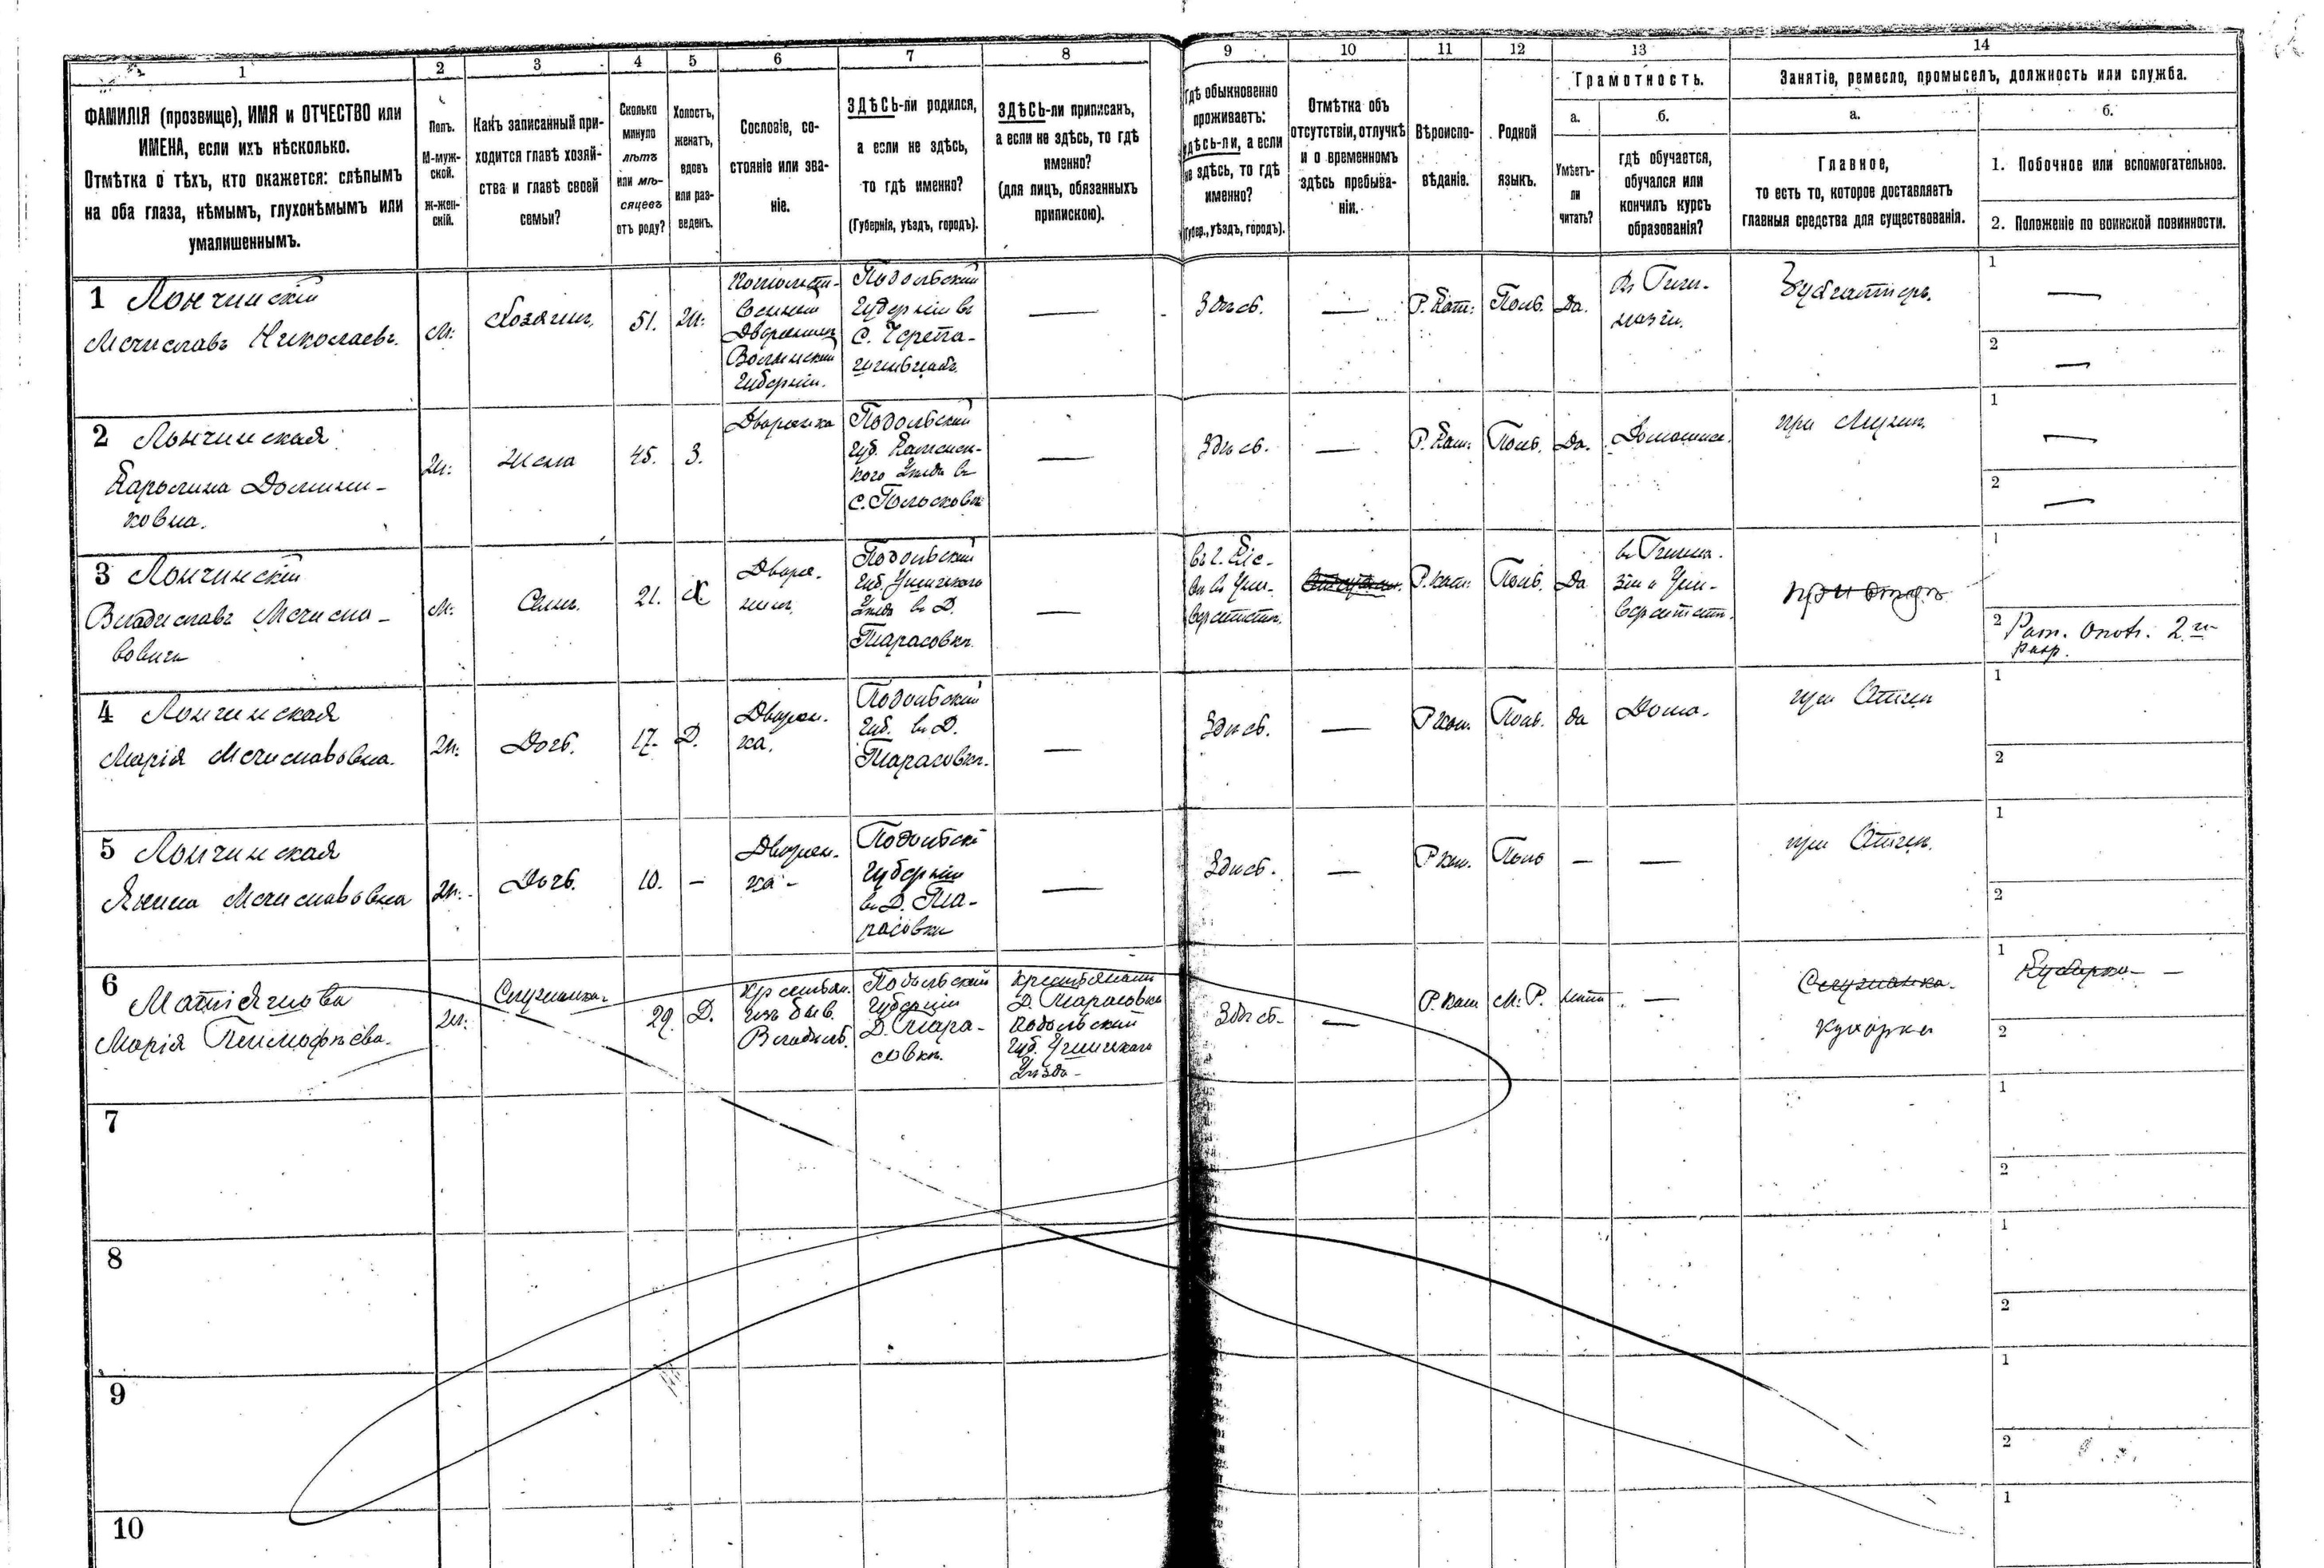 1
2
3
4
5
6
7
8
9
10
11
12
13
14
ФАМИЛІЯ (прозвище), ИМЯ и ОТЧЕСТВО или
ИМЕНА, если ихъ нѣсколько.
Отмѣтка о тѣхъ, кто окажется: слѣпымъ
на оба глаза, нѣмымъ, глухонѣмымъ или
умалишеннымъ.
Полъ.
М-муж-
ской.
ж-жен-
скій.
Какъ записанный при-
ходится главѣ хозяй-
ства и главѣ своей
семьи?
Сколько
минуло
лѣтъ
или мѣ-
сяцевъ
отъ роду?
Холостъ,
женатъ,
вдовъ
или раз-
веденъ.
Сословіе, со-
стояніе или зва-
ніе.
ЗДѢСЬ-ли родился,
а если не здѣсь,
то гдѣ именно?
(Губернія, уѣздъ, городъ).
ЗДѢСЬ-ли приписанъ,
а если не здѣсь, то гдѣ
именно?
(для лицъ, обязанныхъ
припискою).
гдѣ обыкновенно
проживаетъ:
здѣсь-ли, а если
не здѣсь, то гдѣ
именно?
(Губер., уѣздъ, городъ).
Отмѣтка объ
отсутствіи, отлучкѣ
и о временномъ
здѣсь пребыва-
ніи.
Вѣроиспо-
вѣданіе.
Родной
языкъ.
Грамотность.
а.
Умѣетъ-
ли
читать?
б.
гдѣ обучается,
обучался или
кончилъ курсъ
образованія?
Занятіе, ремесло, промыселъ, должность или служба.
а.
Главное,
то есть то, которое доставляетъ
главныя средства для существованія.
б.
1. Побочное или вспомогательное.
2. Положеніе по воинской повинности.
1 Лончинскій
Мечиславъ Николаевъ.
М.
Хозяинъ.
51.
Ж.
Дворянинъ
Волынской
Губерніи.
Подольской
Губерніи въ
С.
Здѣсь.
Р. Кат.
Поль.
Да.
Въ Гим-
назіи.
1
2
2 Лончинская
Каролина Домини-
ковна.
Ж.
Жена
45.
З.
Дворянка
Подольской
Губ. Каменец-
кого Уѣзда въ
С.
Здѣсь.
Р. Кат.
Поль.
Да.
Домашнее.
при Мужѣ
1
2
3 Лончинскій
Владиславъ Мечисла-
вовичъ
М.
Сынъ.
21.
Х
Дворя-
нинъ
Подольской
Губ. Ушицкого
Уѣзда въ Д.
Тарасовкѣ
въ г. Кіе-
вѣ въ Уни-
верситетѣ.
Р. кат.
Поль.
Да
въ Гимна-
зіи и Уни-
верситетѣ.
при отцѣ
1
2 Рат. Опол. 2го
разр.
4 Лончинская
Марія Мечиславовна.
Ж.
Дочь.
17.
Д.
Дворян-
ка.
Подольской
Губ. въ Д.
Тарасовкѣ.
Здѣсь.
Р кат.
Поль.
да
Дома.
при Отцѣ
1
2
5 Лончинская
Янина Мечиславовна
Ж.
Дочь.
10.
–
Дворян-
ка –
Подольской
Губерніи
въ Д. Та-
расовкѣ
Здѣсь.
Р кат.
Поль
при Отцѣ.
1
2
6
Марія Тимофѣева.
Ж.
Служанка
29.
Д.
Крестьян.
изъ быв.
Владѣль.
Подольской
Губерніи
Д. Тара-
совкѣ.
Крестьянка
Д. Тарасовки
Подольской
Губ. Ушицкого
Уѣзда
Здѣсь.
Р. Кат
М. Р.
Служанка.
Кухарка
1 Кухарка
2
7
1
2
8
1
2
9
1
2
10
1